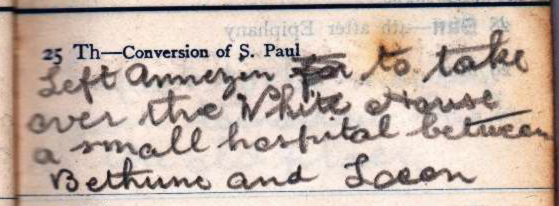 25 Th—Conversion of S. Paul
Left Annezin for to take
over the White House
a small hospital between
Bethune and Locon